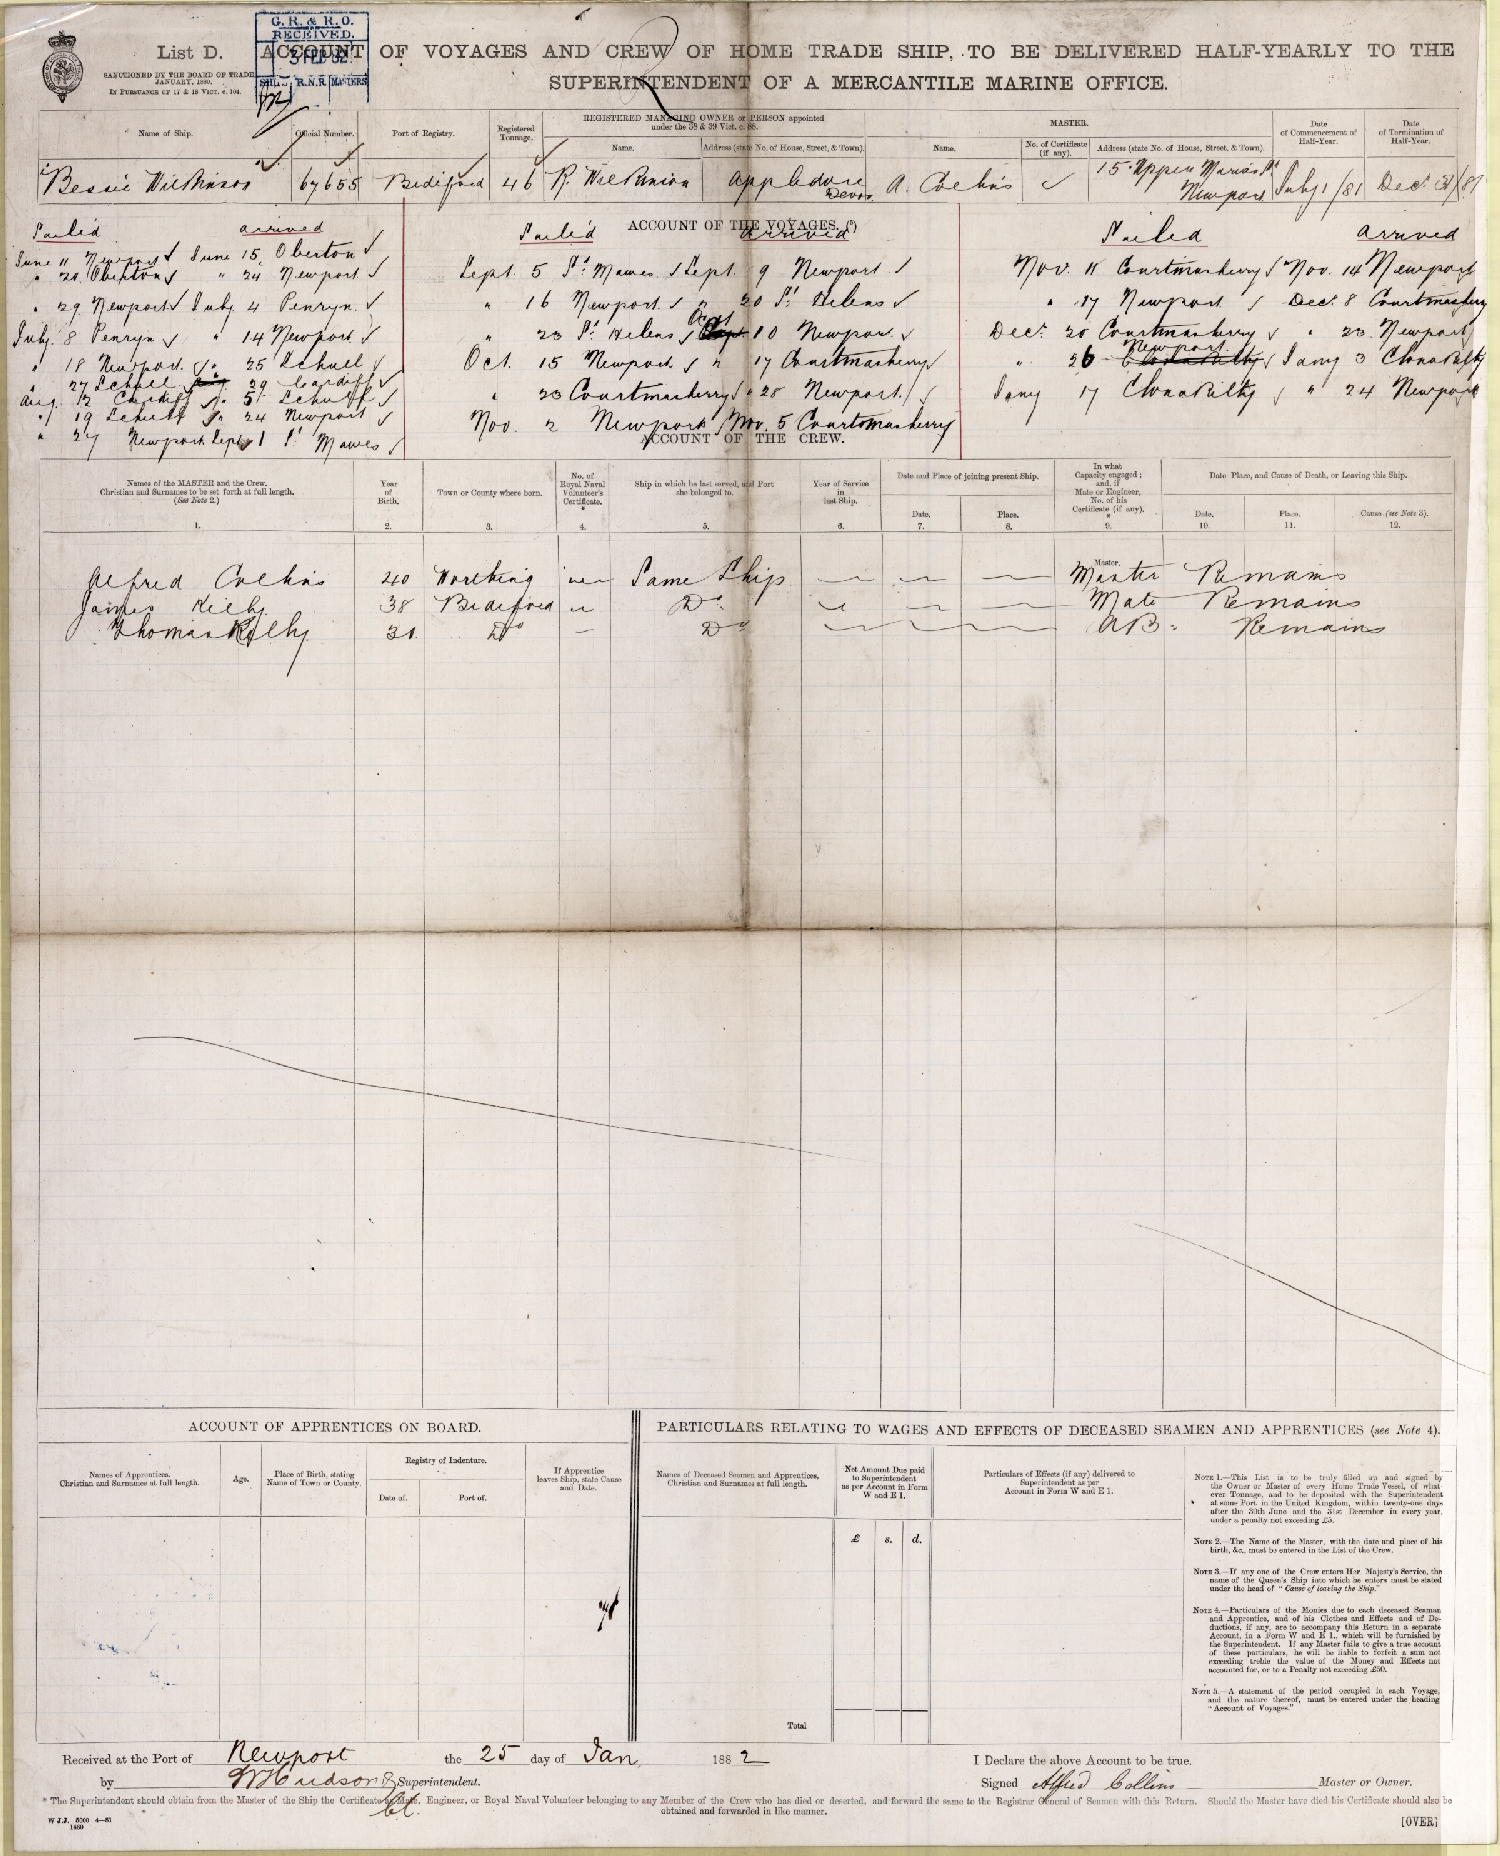 G. R. & R. O.
RECEIVED.
3 FEB 82
SHIPS R.N.R MASTERS
List D. ACCOUNT OF VOYAGES AND CREW OF HOME TRADE SHIP, TO BE DELIVERED HALF-YEARLY TO THE
SUPERINTENDENT OF A MERCANTILE MARINE OFFICE.
SANCTIONED BY THE BOARD OF TRADE
JANUARY, 1880.
IN PURSUANCE OF 17 & 18 VICT. c. 104.
Name of Ship. Official Number. Port of Registry. Registered Tonnage. REGISTERED MANAGING OWNER or PERSON appointed under the 38 & 39 Vict. c. 88. MASTER. Date of Commencement of Half-Year. Date of Termination of Half-Year.
Name. Address (state No. of House, Street, & Town). Name. No. of Certificate (if any). Address (state No. of House, Street, & Town).
Bessie Wilkinson 67655 Bideford 46 R. Wilkinson Appledore Devon A. Collins 15 Upper Newport July 1/81 Dec. 31/81
ACCOUNT OF THE VOYAGES. (5)
Sailed arrived
June 11 Newport June 15 Oberton
" 20 Oberton " 24 Newport
" 29 Newport July 4 Penryn
July 8 Penryn " 14 Newport
" 18 Newport " 25 Schull
" 27 Schull 29 Cardiff
Aug 12 Cardiff " 5 Schull
" 19 Schull " 24 Newport
" 27 Newport Sept 1 St Mawes
Sailed arrived
Sept. 5 St Mawes Sept. 9 Newport
" 16 Newport " 20 St Helens
" 23 St Helens Oct 10 Newport
Oct. 15 Newport " 17 Courtmasherry
" 23 Courtmasherry " 28 Newport
Nov. 2 Newport Nov. 5 Courtomasherry
Sailed arrived
Nov. 11 Courtmasherry Nov. 14 Newport
" 17 Newport Dec. 8 Courtmasherry
Decr 20 Courtmasherry " 23 Newport
" 26 Newport Jany 3 Clonakilty
Jany 17 Clonakilty " 24 Newport
ACCOUNT OF THE CREW.
Names of the MASTER and the Crew. Christian and Surnames to be set forth at full length. (See Note 2.) Year of Birth. Town or County where born. No. of Royal Naval Volunteer's Certificate. Ship in which he last served, and Port she belonged to. Year of Service in last Ship. Date and Place of joining present Ship. In what Capacity engaged; and, if Mate or Engineer, No. of his Certificate (if any). Date Place, and Cause of Death, or Leaving this Ship.
Date. Place. Date. Place. Cause. (see Note 3).
1. 2. 3. 4. 5. 6. 7. 8. 9. 10. 11. 12.
Master.
Alfred Collins 40 Worthing Same Ship Master Remains
James Kilby 38 Bideford Do Mate Remains
Thomas Kilby 30 Do Do AB. Remains
ACCOUNT OF APPRENTICES ON BOARD.
Names of Apprentices. Christian and Surnames at full length. Age. Place of Birth, stating Name of Town or County. Registry of Indenture. If Apprentice leaves Ship, state Cause and Date.
Date of. Port of.
PARTICULARS RELATING TO WAGES AND EFFECTS OF DECEASED SEAMEN AND APPRENTICES (see Note 4).
Names of Deceased Seamen and Apprentices, Christian and Surnames at full length. Net Amount Due paid to Superintendent as per Account in Form W and E 1. Particulars of Effects (if any) delivered to Superintendent as per Account in Form W and E 1.
£ s. d.
Total
NOTE 1.—This List is to be truly filled up and signed by
the Owner or Master of every Home Trade Vessel, of what
ever Tonnage, and to be deposited with the Superintendent
at some Port in the United Kingdom, within twenty-one days
after the 30th June and the 31st December in every year,
under a penalty not exceeding £5.
NOTE 2.—The Name of the Master, with the date and place of his
birth, &c., must be entered in the List of the Crew.
NOTE 3.—If any one of the Crew enters Her Majesty's Service, the
name of the Queen's Ship into which he enters must be stated
under the head of "Cause of leaving the Ship."
NOTE 4.—Particulars of the Monies due to each deceased Seaman
and Apprentice, and of his Clothes and Effects and of De-
ductions, if any, are to accompany this Return in a separate
Account, in a Form W and E 1., which will be furnished by
the Superintendent. If any Master fails to give a true account
of these particulars, he will be liable to forfeit a sum not
exceeding treble the value of the Money and Effects not
accounted for, or to a Penalty not exceeding £50.
NOTE 5.—A statement of the period occupied in each Voyage,
and the nature thereof, must be entered under the heading
"Account of Voyages."
Received at the Port of Newport the 25 day of Jan 1882
by W Hudson Superintendent.
I Declare the above Account to be true.
Signed Alfred Collins Master or Owner.
* The Superintendent should obtain from the Master of the Ship the Certificate of Mate, Engineer, or Royal Naval Volunteer belonging to any Member of the Crew who has died or deserted, and forward the same to the Registrar General of Seamen with this Return. Should the Master have died his Certificate should also be
obtained and forwarded in like manner.
W J.J. 5000 4—81
1450
[OVER]